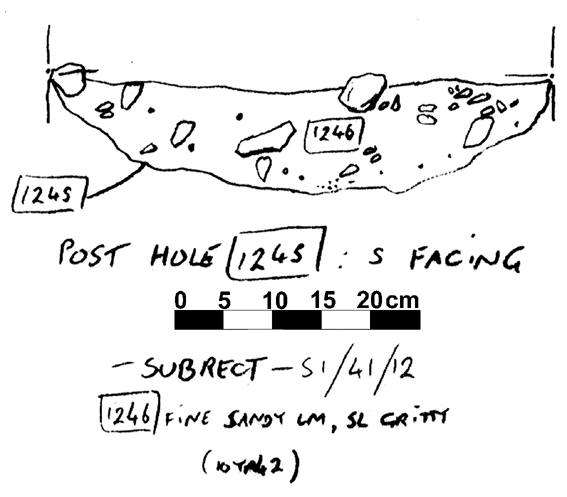 1246
1245
POST HOLE 1245 : S FACING
0 5 10 15 20 cm
- SUBRECT - S1/41/12
1246 FINE SANDY LM, SL GRITTY
(10YR4/2)